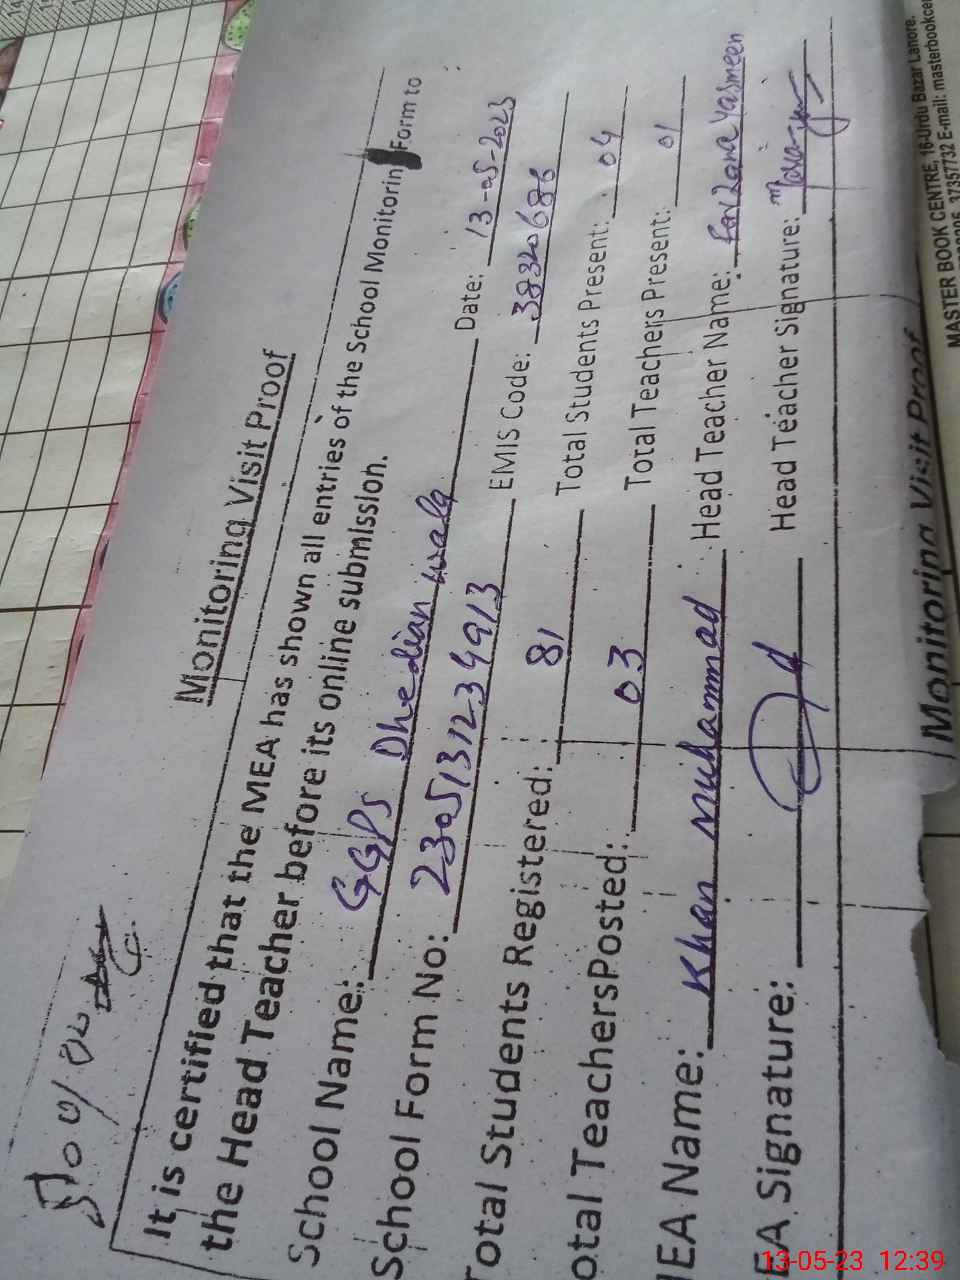 Monitoring Visit Proof
It is certified that the MEA has shown all entries of the School Monitorin Form to
the Head Teacher before its online submission.
School Name: GGPS Dhedian wala Date: 13-05-2023
School Form No: 2305131234913 EMIS Code: 38320686
Total Students Registered: 81 Total Students Present: 04
otal TeachersPosted: 03 Total Teachers Present: 01
EA Name: Khan Muhammad Head Teacher Name: Farzana Yasmeen
EA Signature: Head Teacher Signature:
Monitoring Visit Proof
MASTER BOOK CENTRE, 16-Urdu Bazar Lahore.
37357732 E-mail: masterbookce
13-05-23 12:39